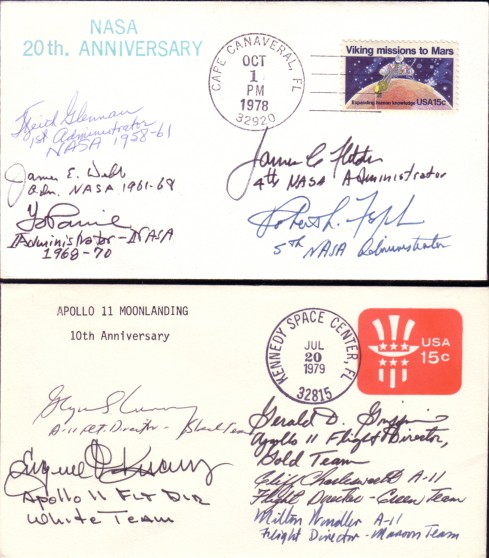 NASA
20th. ANNIVERSARY
CAPE CANAVERAL, FL
OCT
1
PM
1978
32920
Viking missions to Mars
Expanding human knowledge USA15c
Keith Glennan
1st Administrator
NASA 1958-61
James E. Webb
Adm. NASA 1961-68
Administrator-NASA
1968-70
James C Fletcher
4th NASA Administrator
5th NASA Administrator
APOLLO 11 MOONLANDING
10th Anniversary
KENNEDY SPACE CENTER, FL
JUL
20
1979
32815
USA
15c
A-11 Flt. Director - Black Team
Apollo 11 FLT DIR
White Team
Gerald D. Griffin
Apollo 11 Flight Director,
Gold Team
Cliff Charlesworth A-11
Flight Director - Green Team
Milton Windler A-11
Flight Director - Maroon Team